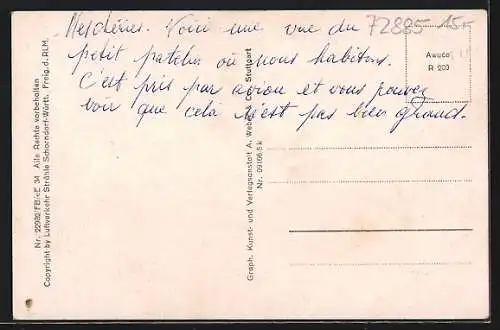 Mes chéries. Voici une vue du
petit patelin où nous habitons.
C'est pris par avion et vous pouvez
voir que celà n'est pas bien grand.
72885 15.-
Aweco
R 200
Nr. 22982/FB/cE 34 Alle Rechte vorbehalten
Copyright by Luftverkehr Strähle Schorndorf-Württ. Freig. d. RLM.
Graph. Kunst- und Verlagsanstalt A. Weber & Co., Stuttgart
Nr. 09166/5 k